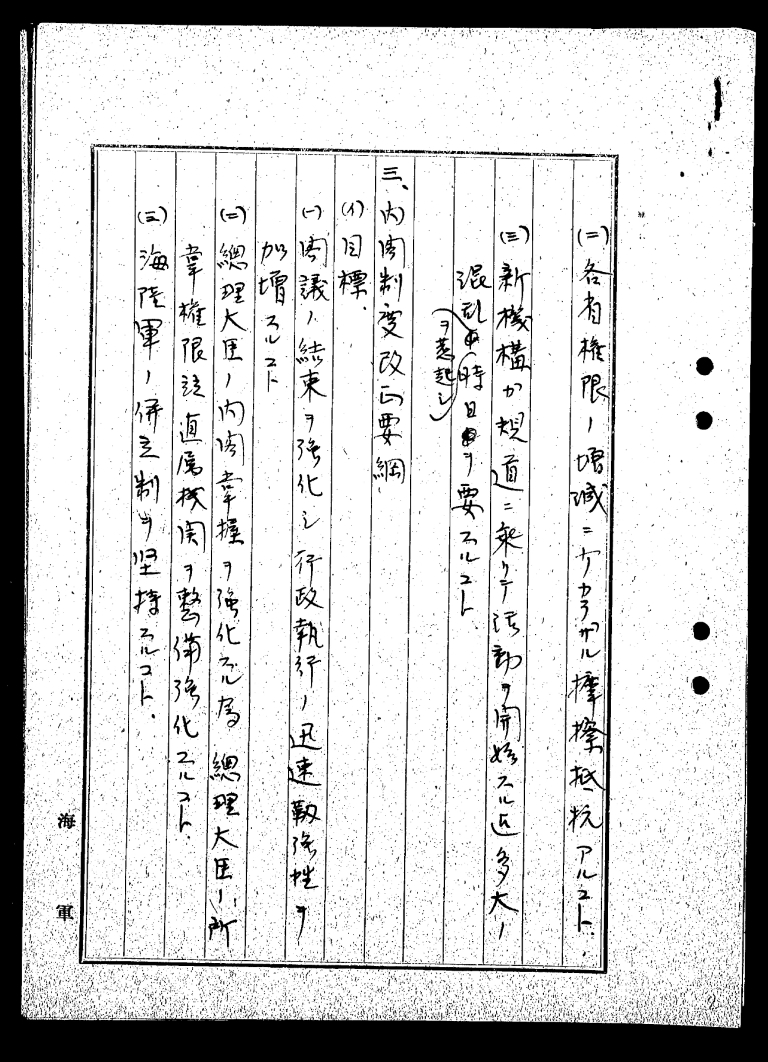 (二)各省権限ノ増減ニナカラザル摩擦抵抗アルコト.
(三)新機構カ規道ニ乗リテ活動ヲ開始スル迄多大ノ
混乱ヲ惹起シ時日ヲ要スルコト.
三、内閣制度改正要綱
(イ)目標.
(一)閣議ノ結束ヲ強化シ行政執行ノ迅速靱強性ヲ
加増スルコト
(二)總理大臣ノ内閣掌握ヲ強化スル為總理大臣ノ所
掌権限並直属機関ヲ整備強化スルコト.
(三)海陸軍ノ併立制ヲ堅持スルコト.
海軍